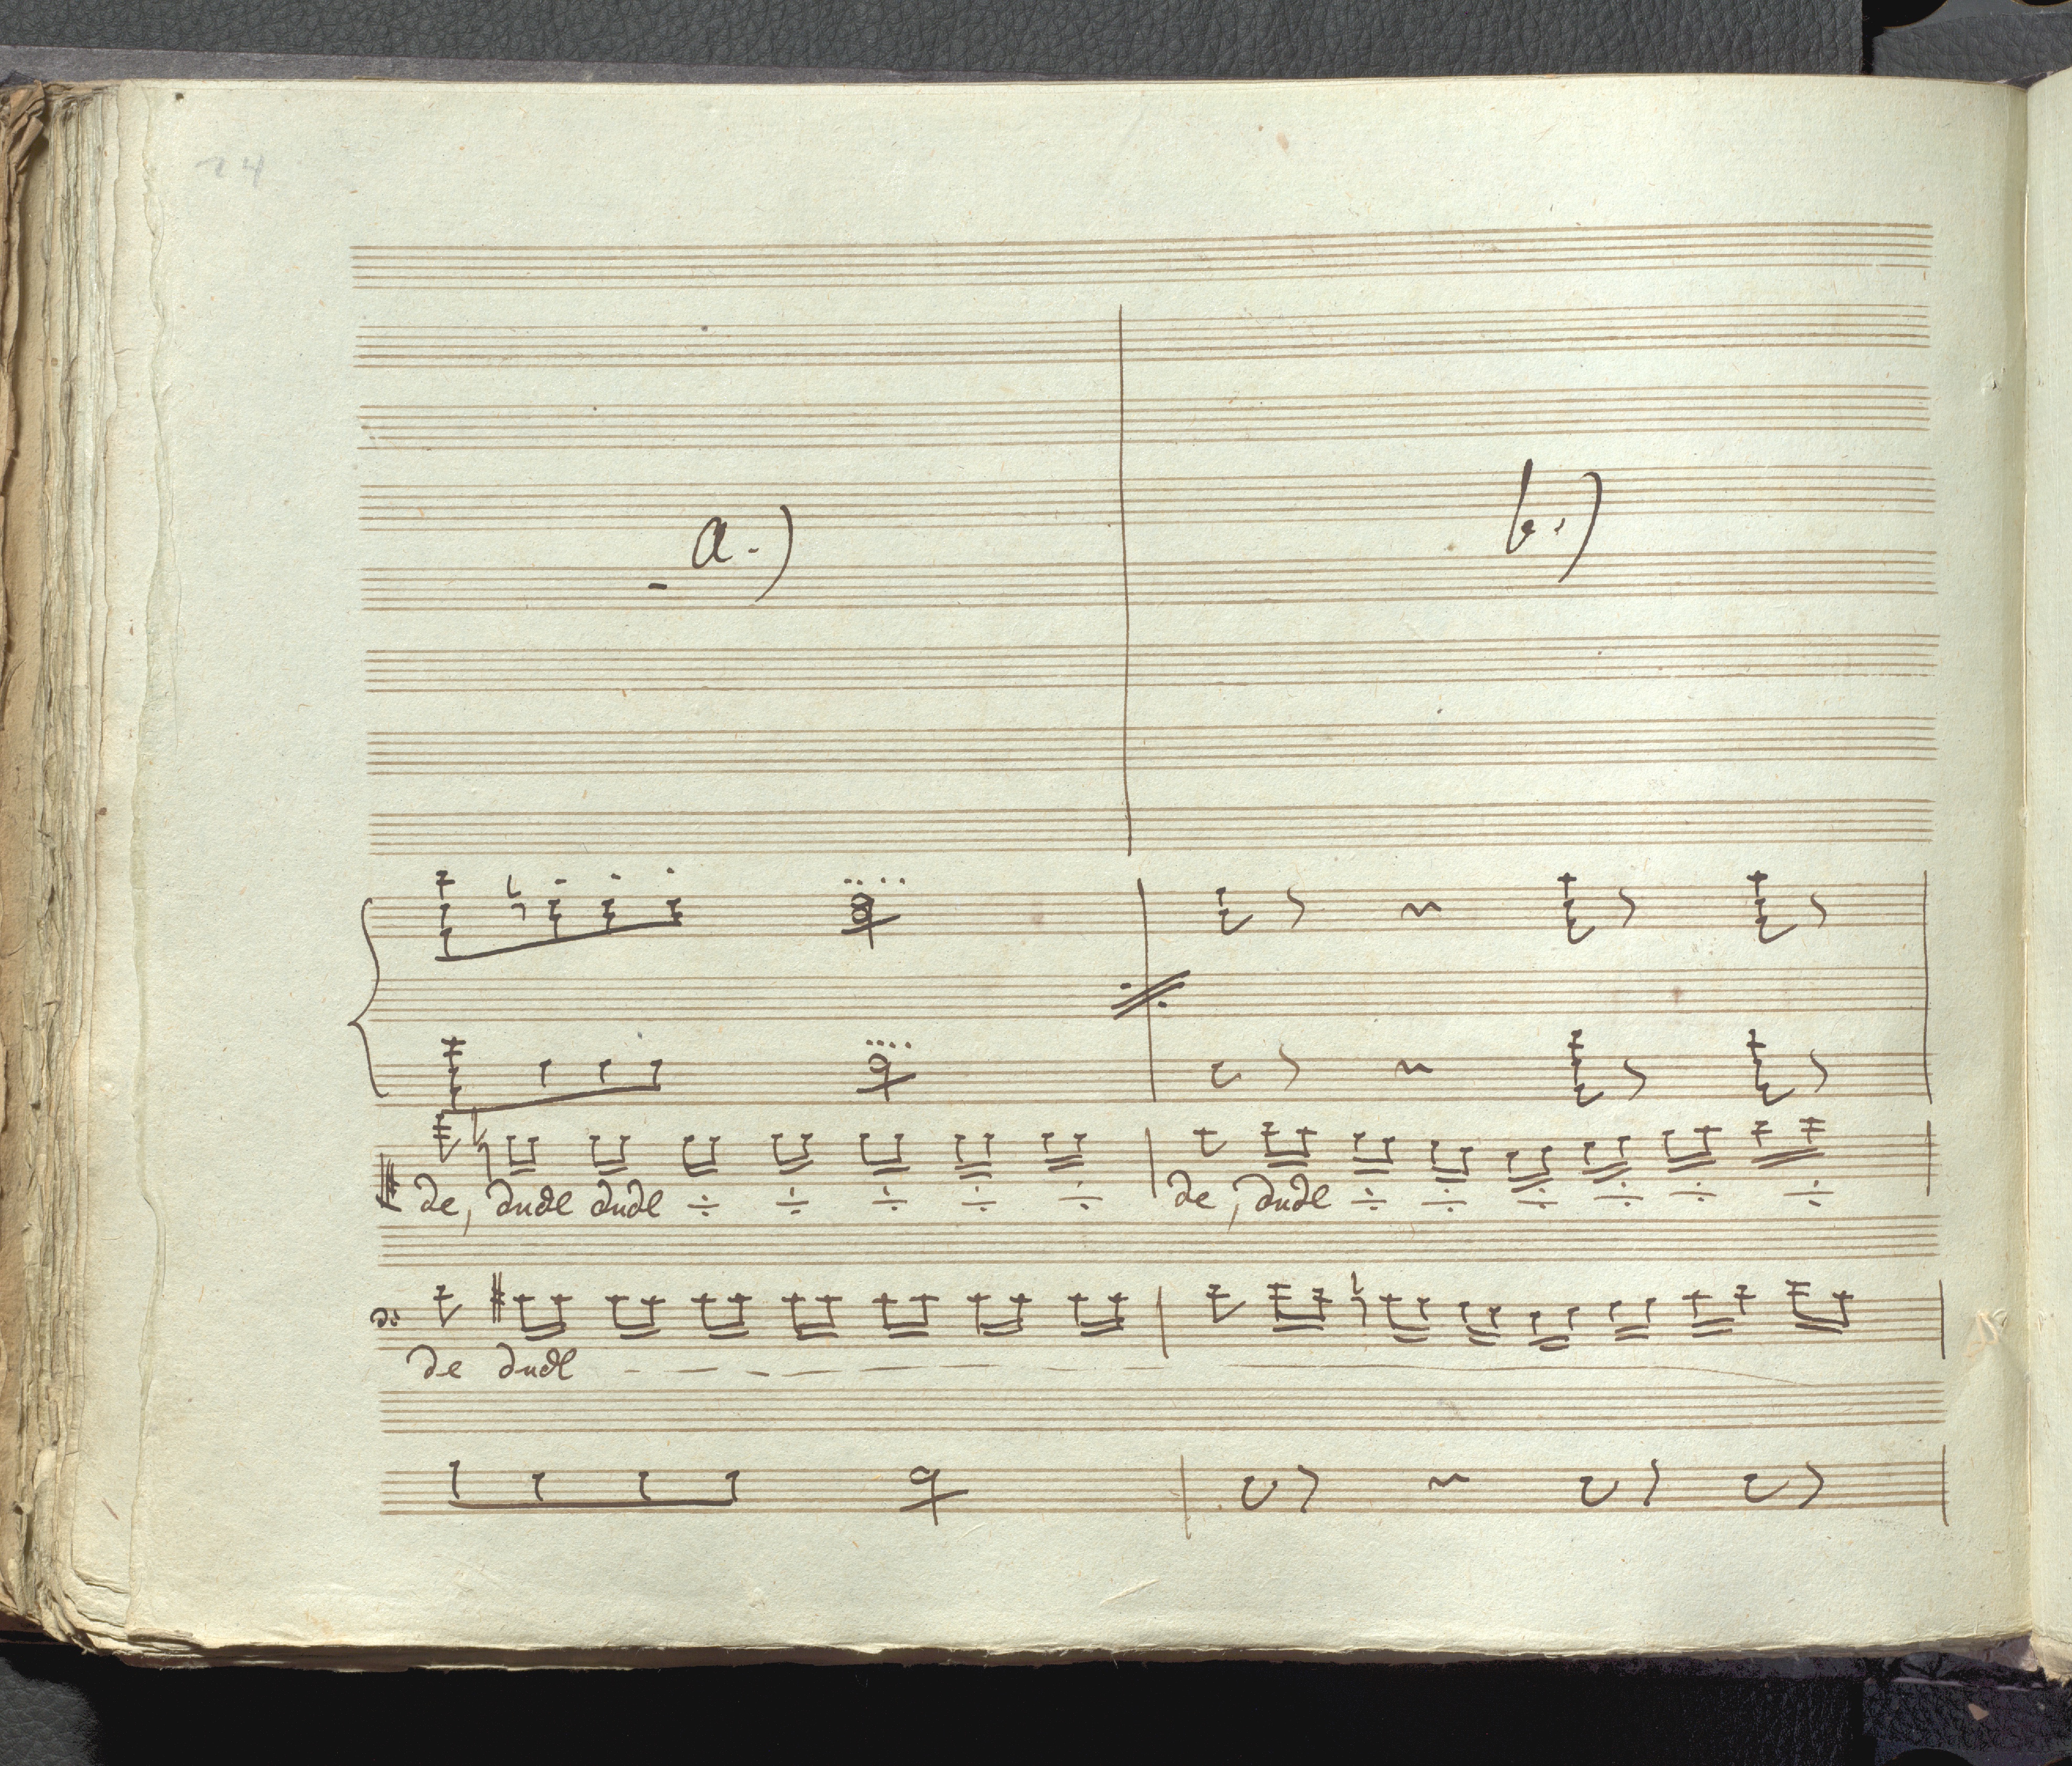 24
a.) b.)
de, dudl dudl ÷ ÷ ÷ ÷ ÷ de, dudl ÷ ÷ ÷ ÷ ÷ ÷
de dudl